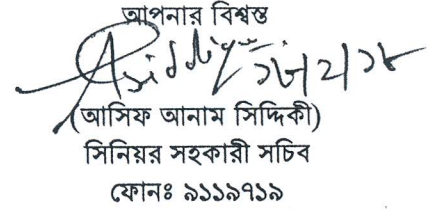 আপনার বিশ্বস্ত
(আসিফ আনাম সিদ্দিকী)
সিনিয়র সহকারী সচিব
ফোনঃ ৯১১৯৭১৯